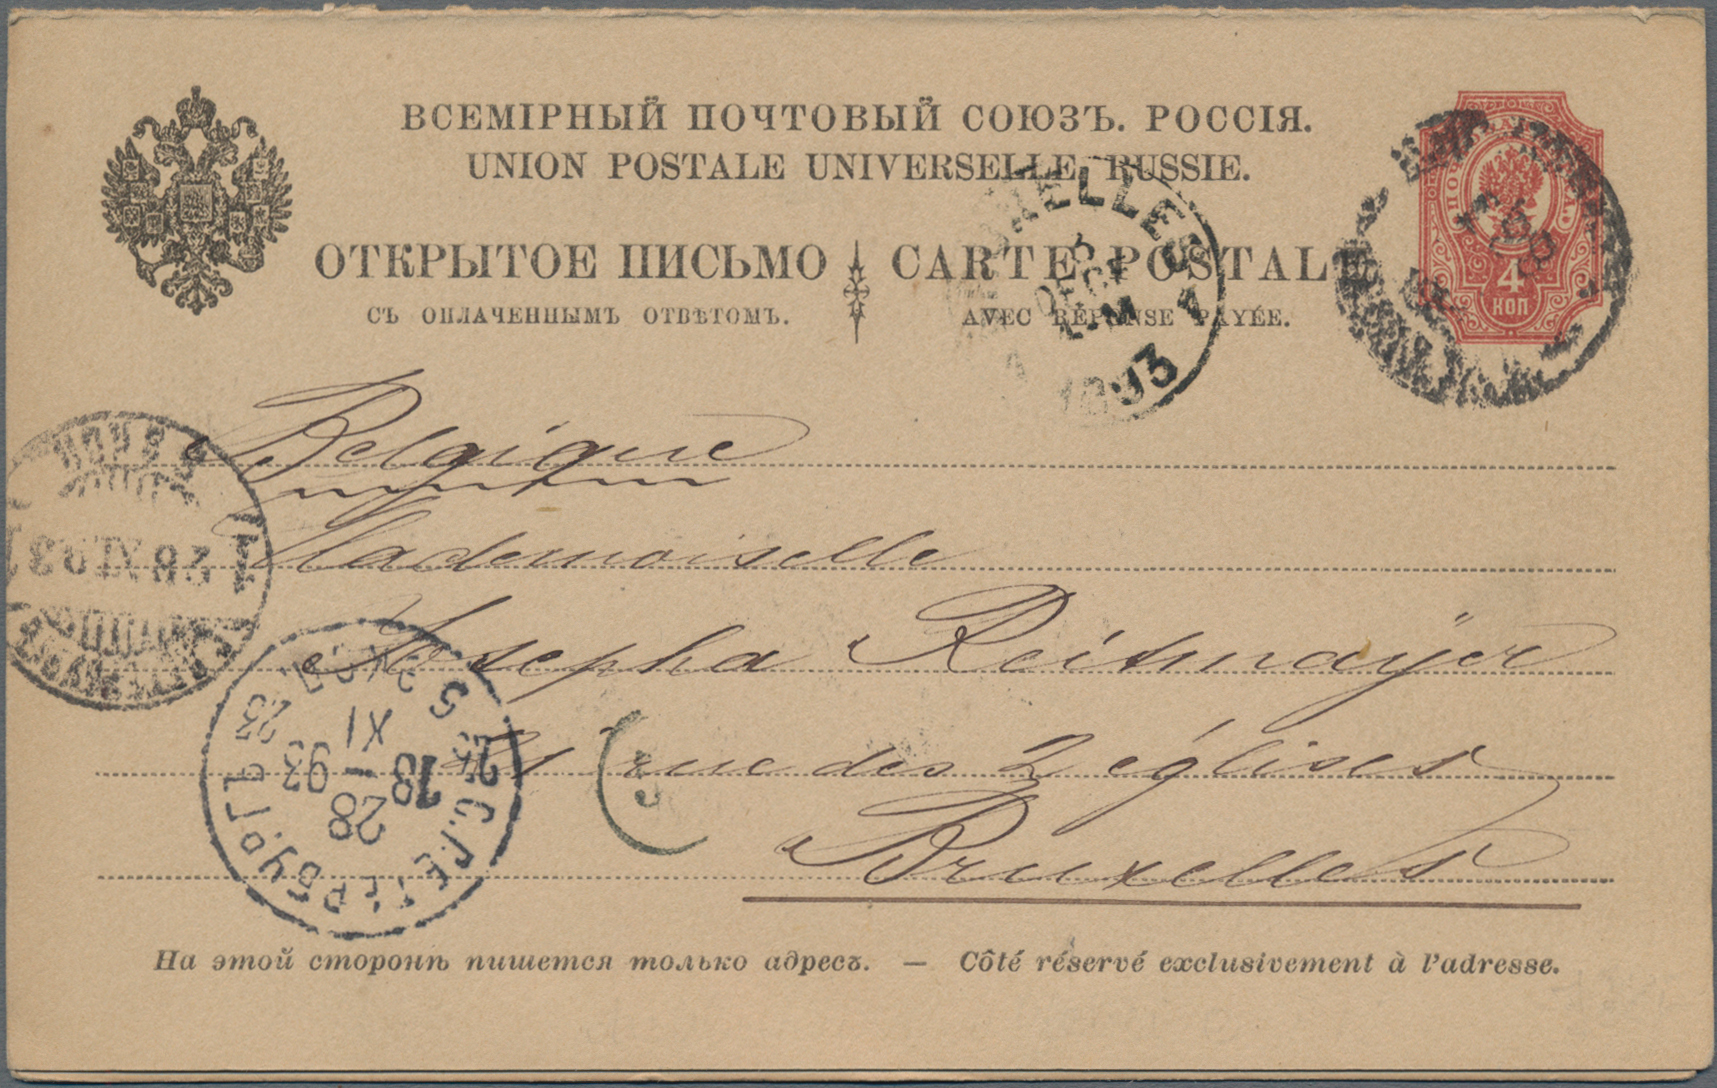 ВСЕМІРНЫЙ ПОЧТОВЫЙ СОЮЗЪ. РОССІЯ.
UNION POSTALE UNIVERSELLE. RUSSIE.
ОТКРЫТОЕ ПИСЬМО
СЪ ОПЛАЧЕННЫМЪ ОТВѢТОМЪ.
CARTE POSTALE
AVEC RÉPONSE PAYÉE.
4
КОП
BRUXELLES
3
DÉC
1893
Belgique
Mademoiselle
Josepha Reitmayer
rue des 2 églises
Bruxelles
1 26 XI 93 1
С.ПЕТЕРБУРГЪ
5 ЭКСП.
28
93
XI
На этой сторонѣ пишется только адресъ. — Côté réservé exclusivement à l'adresse.